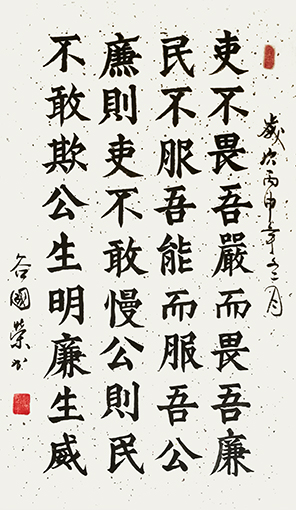 歲次丙申年之二月
吏不畏吾嚴而畏吾廉
民不服吾能而服吾公
廉則吏不敢慢公則民
不敢欺公生明廉生威
谷國榮书